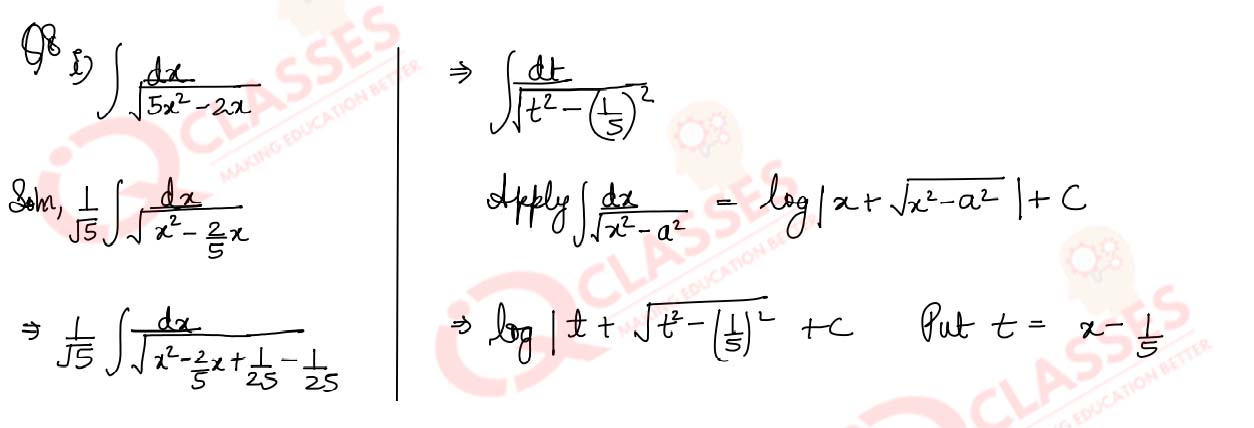 Q8 i) ∫ dx / √(5x² - 2x)
Soln, 1/√5 ∫ dx / √(x² - 2/5 x)
⇒ 1/√5 ∫ dx / √(x² - 2/5 x + 1/25 - 1/25)
⇒ ∫ dt / √(t² - (1/5)²)
Apply ∫ dx / √(x² - a²) = log | x + √(x² - a²) | + C
⇒ log | t + √(t² - (1/5)²) + C Put t = x - 1/5
CLASSES
MAKING EDUCATION BETTER
CLASSES
MAKING EDUCATION BETTER
CLASSES
EDUCATION BETTER